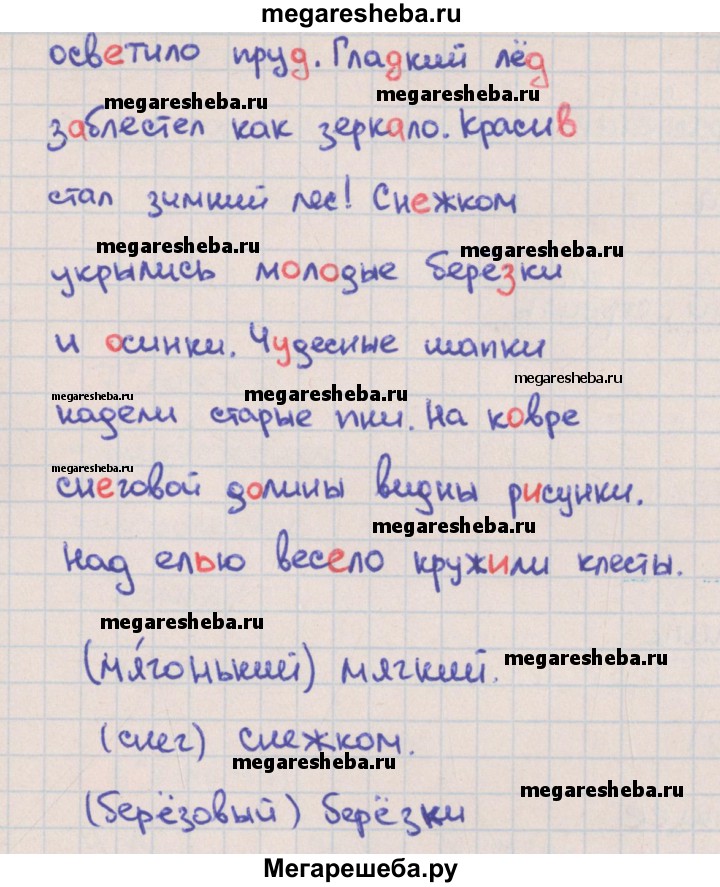 megaresheba.ru
осветило пруд. Гладкий лёд
megaresheba.ru megaresheba.ru
заблестел как зеркало. Красив
стал зимний лес! Снежком
megaresheba.ru megaresheba.ru
укрылись молодые березки
и осинки. Чудесные шапки
megaresheba.ru megaresheba.ru megaresheba.ru
надели старые пни. На ковре
megaresheba.ru
снеговой долины видны рисунки.
megaresheba.ru
Над елью весело кружили клесты.
megaresheba.ru
(мя́гонький) мягкий. megaresheba.ru
(снег) снежком.
megaresheba.ru
(берёзовый) берёзки
Мегарешеба.ру